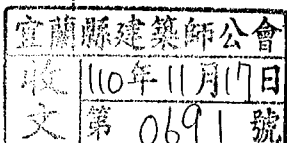 宜蘭縣建築師公會
收文
110年11月17日
第0691號